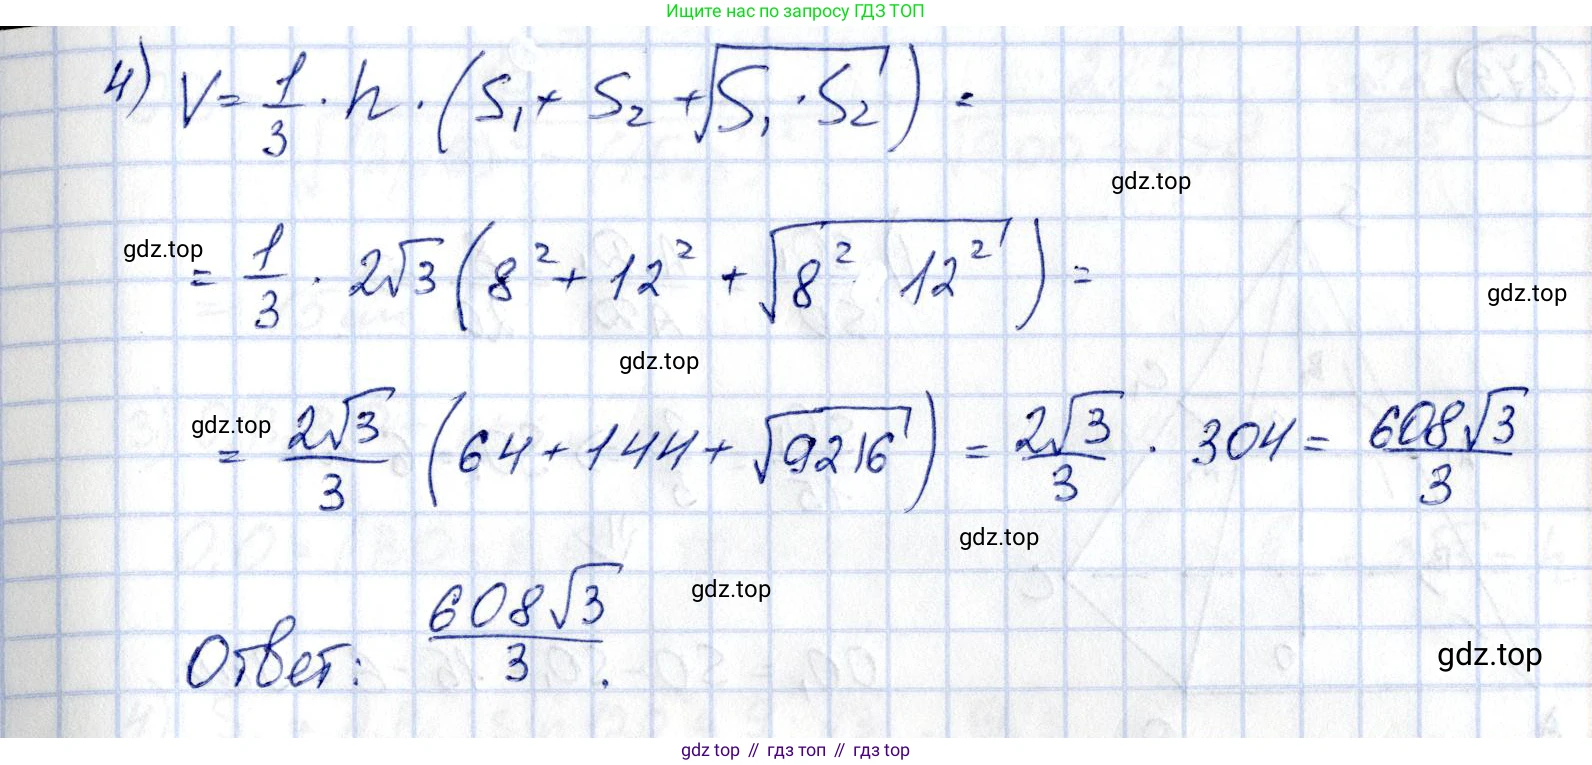 Ищите нас по запросу ГДЗ ТОП
4) V = 1/3 · h · (S₁ + S₂ + √(S₁ · S₂)) =
gdz.top
gdz.top
= 1/3 · 2√3 (8² + 12² + √(8² · 12²)) =
gdz.top
gdz.top
gdz.top
= 2√3/3 (64 + 144 + √9216) = 2√3/3 · 304 = 608√3/3
gdz.top
gdz.top
Ответ: 608√3/3.
gdz.top
gdz top // гдз топ // гдз top